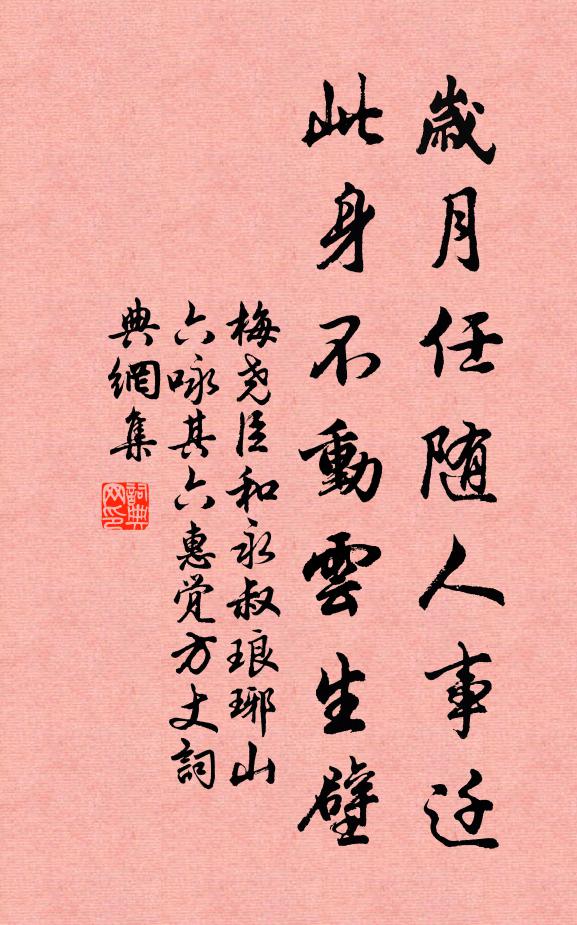 歲月任随人事迁
此身不動雲生壁
梅尧臣和永叔琅琊山
六咏其六惠觉方丈詞
典網集
詞典
网印